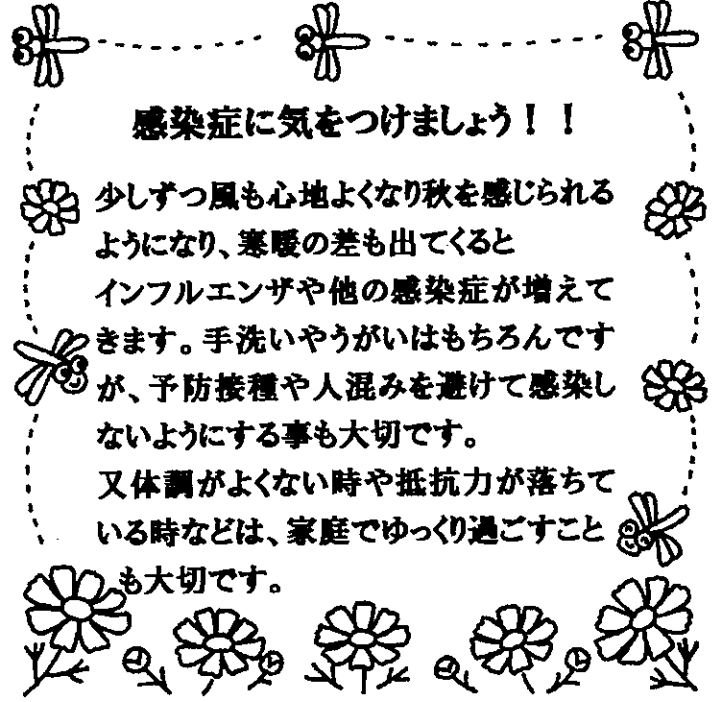 感染症に気をつけましょう！！
少しずつ風も心地よくなり秋を感じられる
ようになり、寒暖の差も出てくると
インフルエンザや他の感染症が増えて
きます。手洗いやうがいはもちろんです
が、予防接種や人混みを避けて感染し
ないようにする事も大切です。
又体調がよくない時や抵抗力が落ちて
いる時などは、家庭でゆっくり過ごすこと
も大切です。